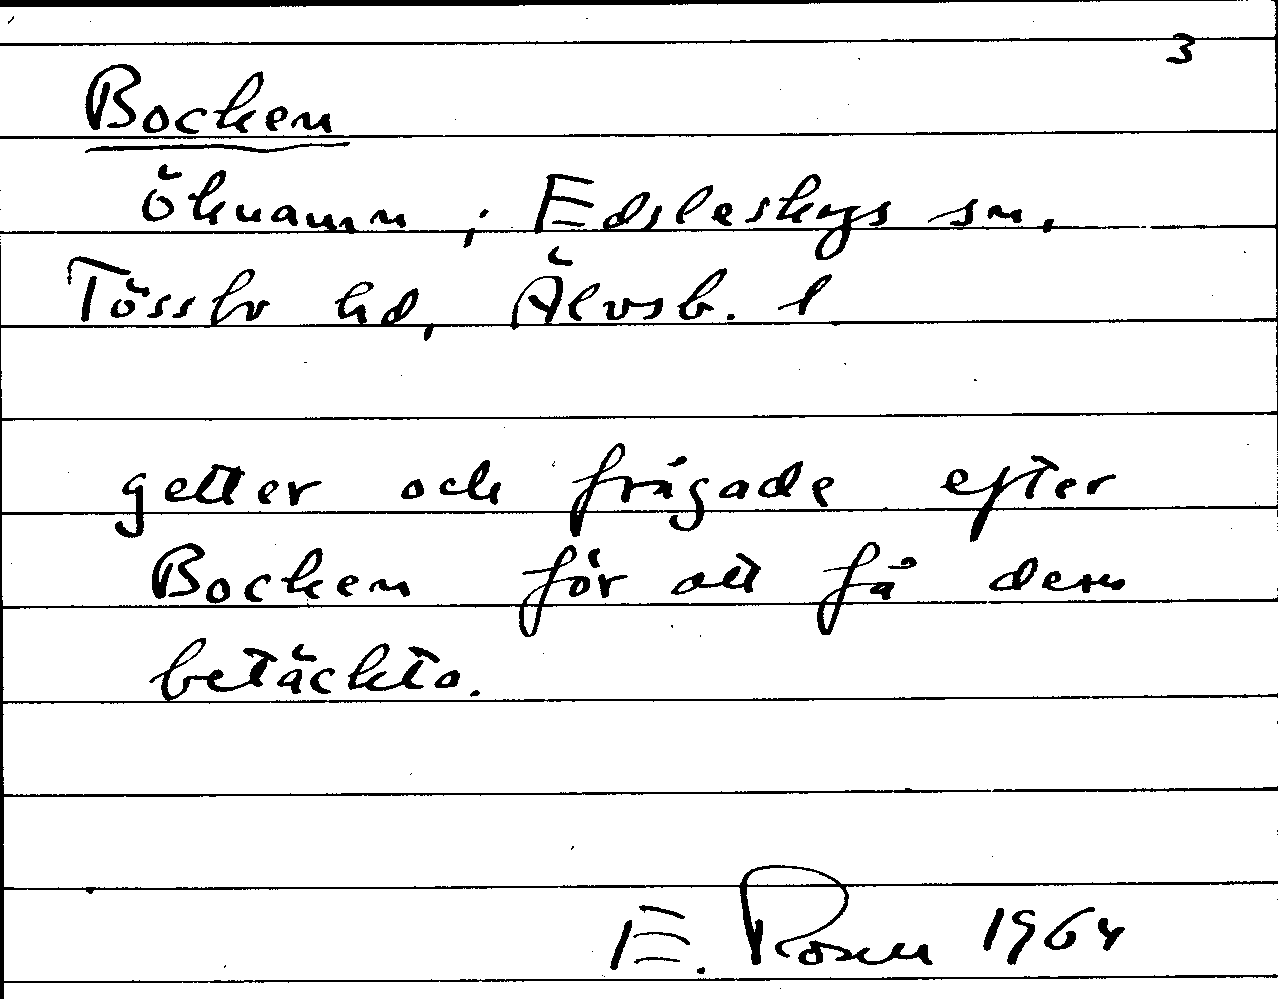 3
Bocken
öknamn; Edsleskogs sn,
Tössbo hd, Älvsb. l
getter och frågade efter
Bocken för att få dem
betäckta.
E. Rosen 1964